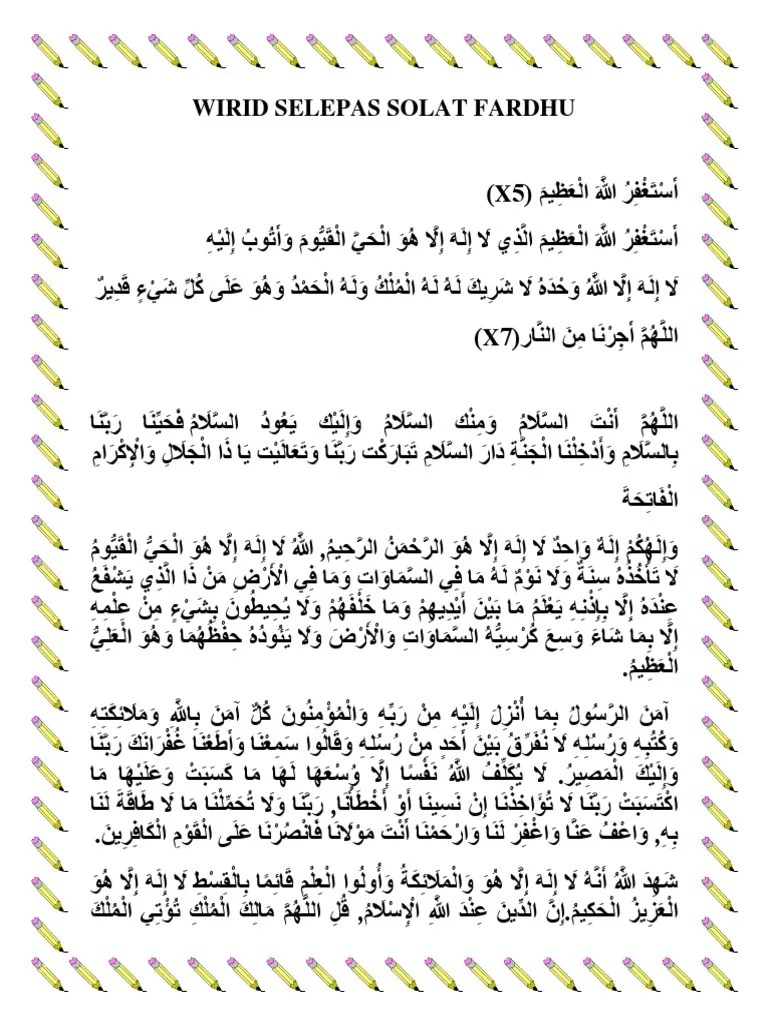 WIRID SELEPAS SOLAT FARDHU
أَسْتَغْفِرُ اللهَ الْعَظِيمَ (X5)
أَسْتَغْفِرُ اللهَ الْعَظِيمَ الَّذِي لَا إِلَهَ إِلَّا هُوَ الْحَيَّ الْقَيُّومَ وَأَتُوبُ إِلَيْهِ
لَا إِلَهَ إِلَّا اللهُ وَحْدَهُ لَا شَرِيكَ لَهُ لَهُ الْمُلْكُ وَلَهُ الْحَمْدُ وَهُوَ عَلَى كُلِّ شَيْءٍ قَدِيرٌ
اللَّهُمَّ أَجِرْنَا مِنَ النَّار(X7)
اللَّهُمَّ أَنْتَ السَّلَامُ وَمِنْك السَّلَامُ وَإِلَيْك يَعُودُ السَّلَامُ فَحَيِّنَا رَبَّنَا
بِالسَّلَامِ وَأَدْخِلْنَا الْجَنَّةِ دَارَ السَّلَامِ تَبَارَكْت رَبَّنَا وَتَعَالَيْت يَا ذَا الْجَلَالِ وَالْإِكْرَامِ
الْفَاتِحَةَ
وَإِلَهُكُمْ إِلَهٌ وَاحِدٌ لَا إِلَهَ إِلَّا هُوَ الرَّحْمَنُ الرَّحِيمُ, اللهُ لَا إِلَهَ إِلَّا هُوَ الْحَيُّ الْقَيُّومُ
لَا تَأْخُذُهُ سِنَةٌ وَلَا نَوْمٌ لَهُ مَا فِي السَّمَاوَاتِ وَمَا فِي الْأَرْضِ مَنْ ذَا الَّذِي يَشْفَعُ
عِنْدَهُ إِلَّا بِإِذْنِهِ يَعْلَمُ مَا بَيْنَ أَيْدِيهِمْ وَمَا خَلْفَهُمْ وَلَا يُحِيطُونَ بِشَيْءٍ مِنْ عِلْمِهِ
إِلَّا بِمَا شَاءَ وَسِعَ كُرْسِيُّهُ السَّمَاوَاتِ وَالْأَرْضَ وَلَا يَئُودُهُ حِفْظُهُمَا وَهُوَ الْعَلِيُّ
الْعَظِيمُ.
آمَنَ الرَّسُولُ بِمَا أُنْزِلَ إِلَيْهِ مِنْ رَبِّهِ وَالْمُؤْمِنُونَ كُلٌّ آمَنَ بِاللهِ وَمَلَائِكَتِهِ
وَكُتُبِهِ وَرُسُلِهِ لَا نُفَرِّقُ بَيْنَ أَحَدٍ مِنْ رُسُلِهِ وَقَالُوا سَمِعْنَا وَأَطَعْنَا غُفْرَانَكَ رَبَّنَا
وَإِلَيْكَ الْمَصِيرُ. لَا يُكَلِّفُ اللهُ نَفْسًا إِلَّا وُسْعَهَا لَهَا مَا كَسَبَتْ وَعَلَيْهَا مَا
اكْتَسَبَتْ رَبَّنَا لَا تُؤَاخِذْنَا إِنْ نَسِينَا أَوْ أَخْطَأْنَا, رَبَّنَا وَلَا تُحَمِّلْنَا مَا لَا طَاقَةَ لَنَا
بِهِ, وَاعْفُ عَنَّا وَاغْفِرْ لَنَا وَارْحَمْنَا أَنْتَ مَوْلَانَا فَانْصُرْنَا عَلَى الْقَوْمِ الْكَافِرِينَ.
شَهِدَ اللهُ أَنَّهُ لَا إِلَهَ إِلَّا هُوَ وَالْمَلَائِكَةُ وَأُولُوا الْعِلْمِ قَائِمًا بِالْقِسْطِ لَا إِلَهَ إِلَّا هُوَ
الْعَزِيزُ الْحَكِيمُ.إِنَّ الدِّينَ عِنْدَ اللهِ الْإِسْلَامُ, قُلِ اللَّهُمَّ مَالِكَ الْمُلْكِ تُؤْتِي الْمُلْكَ